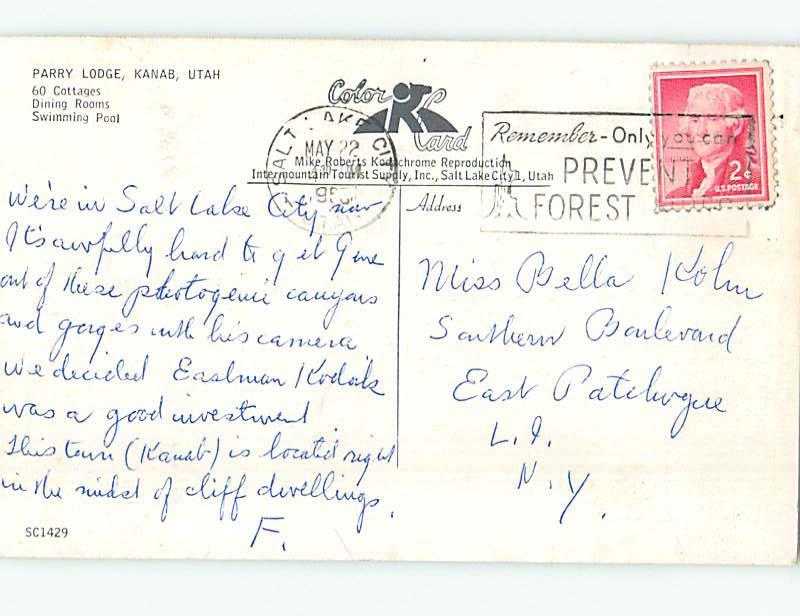 PARRY LODGE, KANAB, UTAH
60 Cottages
Dining Rooms
Swimming Pool
Color
Card
SALT LAKE CITY
MAY 22
Remember-Only you can
PREVENT
FOREST
2¢
U.S. POSTAGE
Mike Roberts Kodachrome Reproduction
Intermountain Tourist Supply, Inc., Salt Lake City 1, Utah
Address
We're in Salt Lake City now
It's awfully hard to get Gene
out of these photogenic canyons
and gorges with his camera
We decided Eastman Kodak
was a good investment.
This town (Kanab) is located right
in the midst of cliff dwellings.
F.
Miss Bella Kohn
Southern Boulevard
East Patchogue
L.I.
N.Y.
SC1429